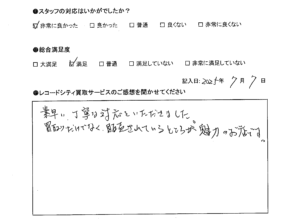 ●スタッフの対応はいかがでしたか？
☑非常に良かった □良かった □普通 □良くない □非常に良くない
●総合満足度
□大満足 ☑満足 □普通 □満足していない □非常に満足していない
記入日: 2025年 7月 7日
●レコードシティ買取サービスのご感想を聞かせてください
素早い、丁寧な対応をいただきました。
買取りだけでなく、販売されているところが魅力のお店です。